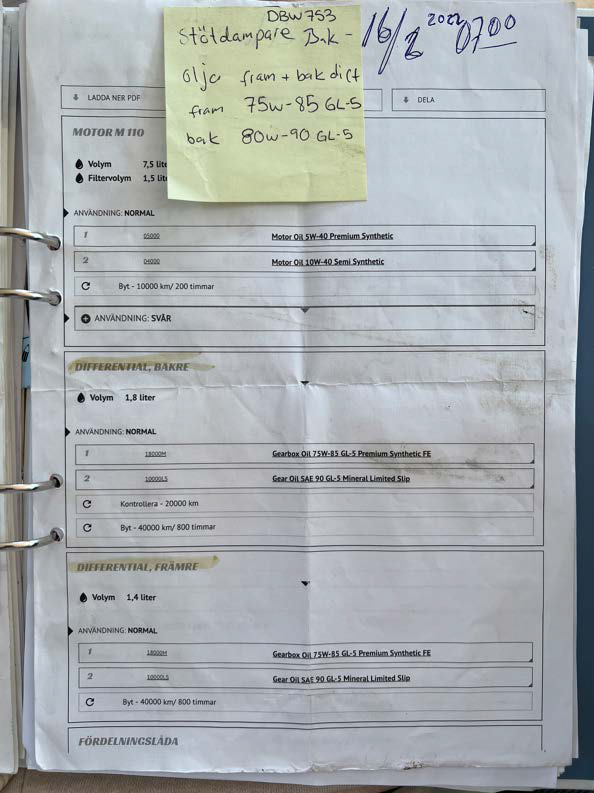 DBW753
Stötdämpare Bak -
olja fram + bak diff
fram 75W-85 GL-5
bak 80W-90 GL-5
16/2 2022 0700
LADDA NER PDF
DELA
MOTOR M 110
Volym 7,5 lite
Filtervolym 1,5 lit
ANVÄNDNING: NORMAL
1 05000 Motor Oil 5W-40 Premium Synthetic
2 04000 Motor Oil 10W-40 Semi Synthetic
Byt - 10000 km/ 200 timmar
ANVÄNDNING: SVÅR
DIFFERENTIAL, BAKRE
Volym 1,8 liter
ANVÄNDNING: NORMAL
1 18000M Gearbox Oil 75W-85 GL-5 Premium Synthetic FE
2 10000LS Gear Oil SAE 90 GL-5 Mineral Limited Slip
Kontrollera - 20000 km
Byt - 40000 km/ 800 timmar
DIFFERENTIAL, FRÄMRE
Volym 1,4 liter
ANVÄNDNING: NORMAL
1 18000M Gearbox Oil 75W-85 GL-5 Premium Synthetic FE
2 10000LS Gear Oil SAE 90 GL-5 Mineral Limited Slip
Byt - 40000 km/ 800 timmar
FÖRDELNINGSLÅDA